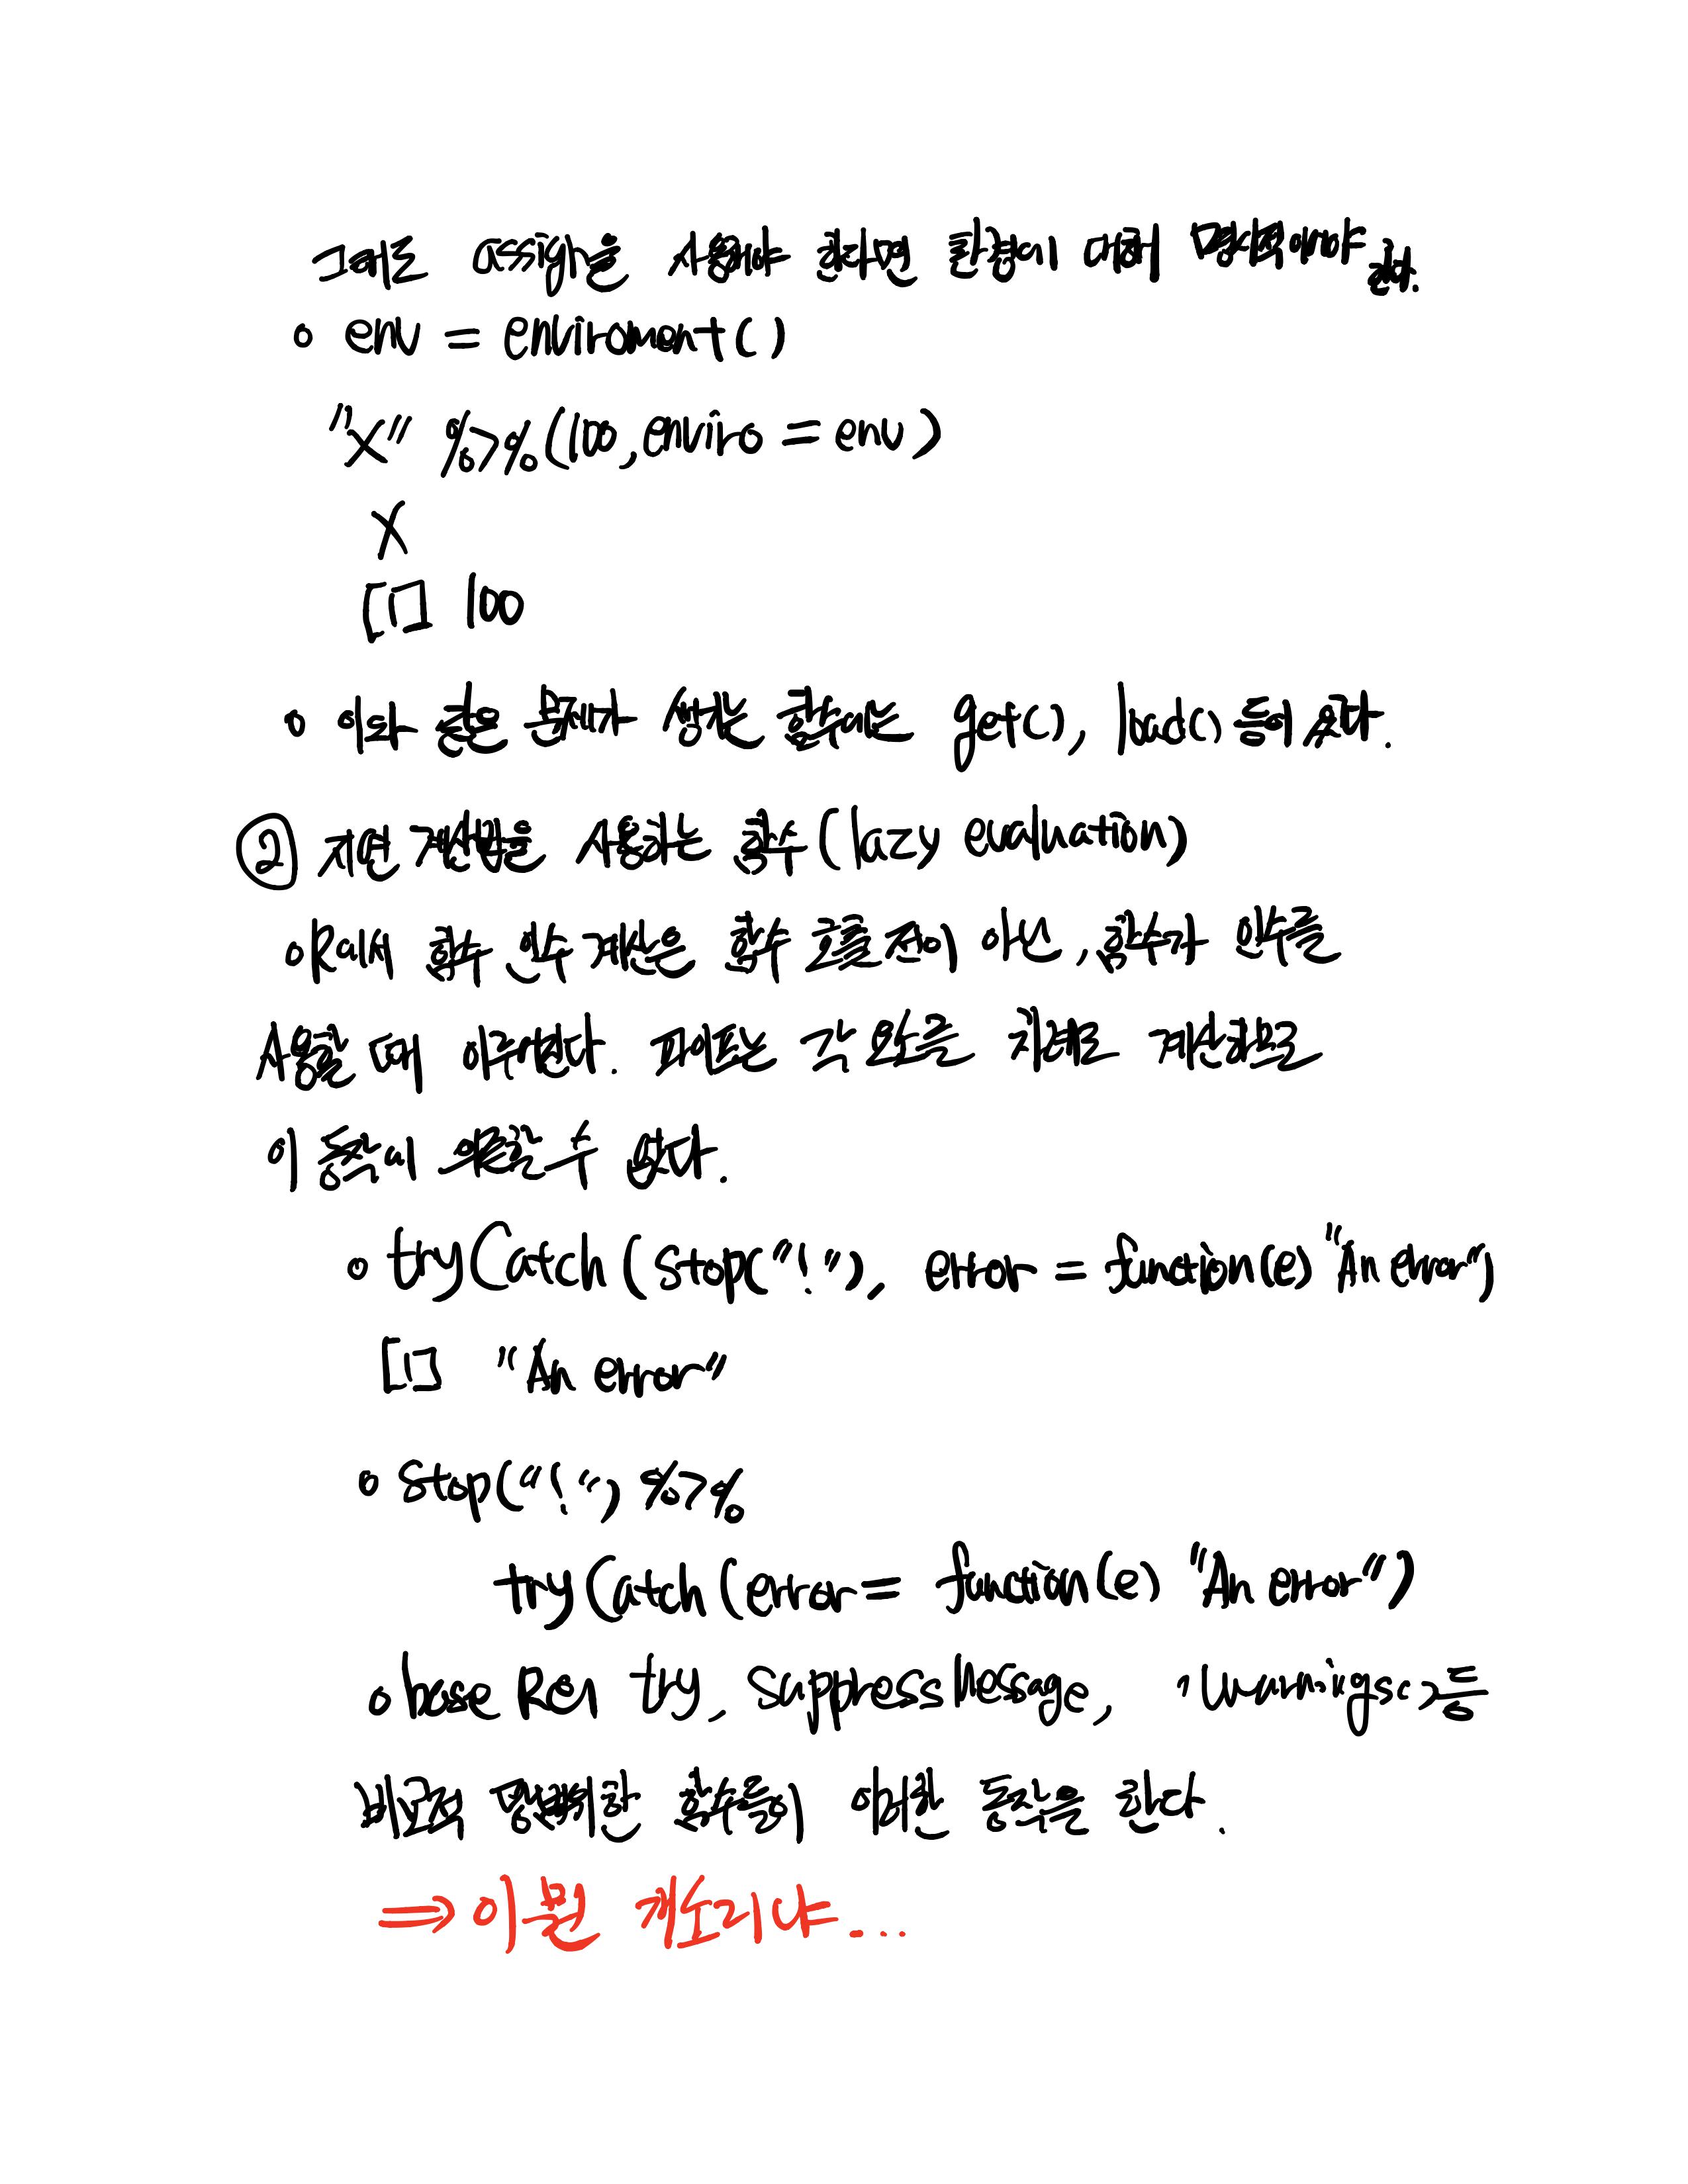 그래도 assign을 사용해야 한다면 환경에 대해 명시적이어야 한다.
∘ env = enviroment()
"X" %>%(100, enviro = env)
X
[1] 100
∘ 이와 같은 문제가 생기는 함수에는 get(), load() 등이 있다.
② 지연 계산법을 사용하는 함수 (lazy evaluation)
∘R에서 함수 인수 계산은 함수 호출 전이 아닌, 함수가 인수를
사용할 때 이루어진다. 파이프는 각 요소를 차례로 계산하므로
이 동작에 의존할 수 없다.
∘ tryCatch (stop("!"), error = function(e) "An error")
[1] "An error"
∘ stop("!") %>%
tryCatch (error = function(e) "An error")
∘ base R의 try, suppressMessage, 〃warnings() 등
비교적 광범위한 함수들이 이러한 동작을 한다.
⇒ 이 뭔 개소리냐...